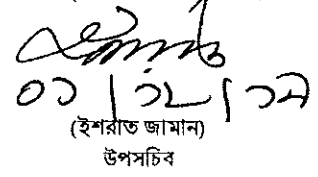 ০১|১২|১৯
(ইশরাত জামান)
উপসচিব